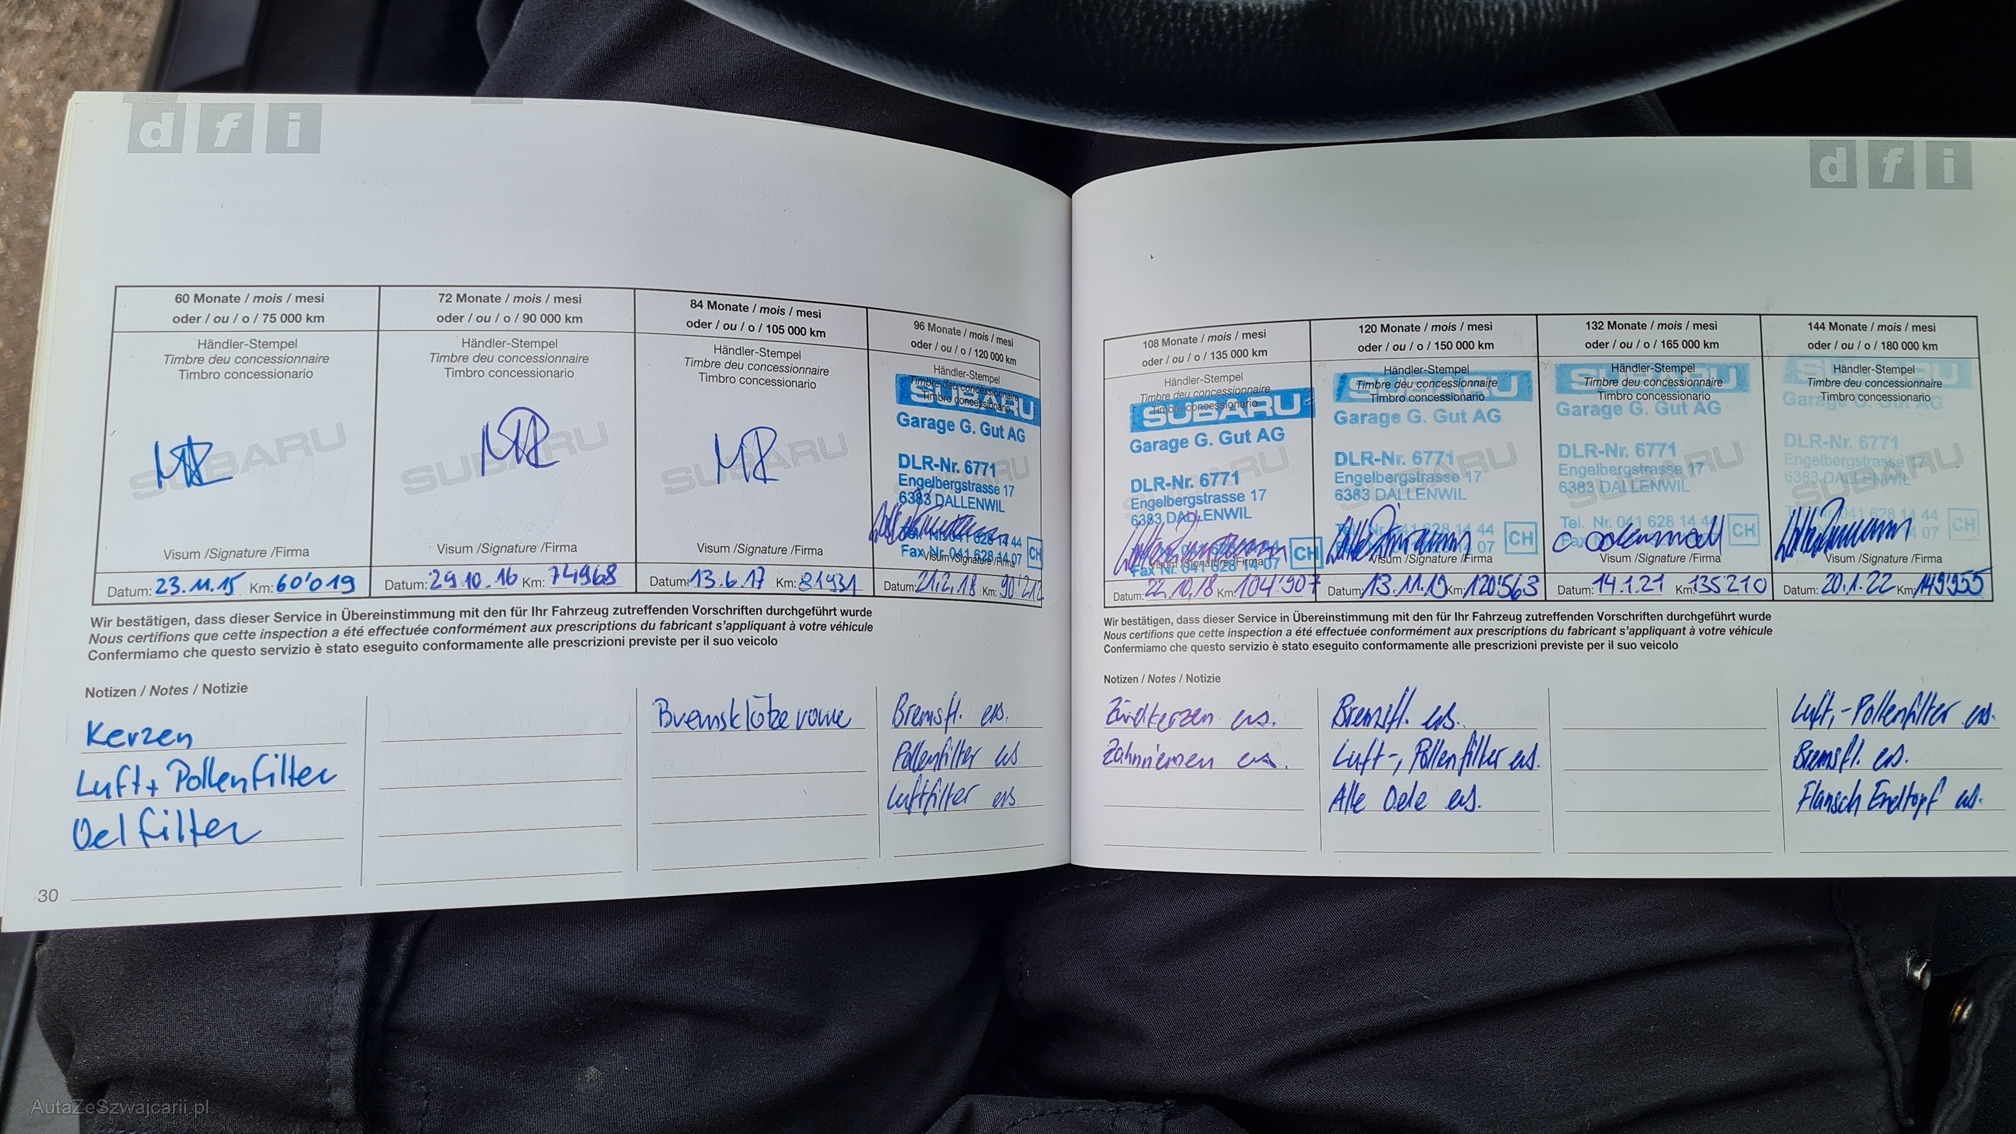 dfi
60 Monate / mois / mesi
oder / ou / o / 75 000 km
Händler-Stempel
Timbre deu concessionnaire
Timbro concessionario
SUBARU
Visum /Signature /Firma
Datum: 23.11.15 Km: 60'019
72 Monate / mois / mesi
oder / ou / o / 90 000 km
Händler-Stempel
Timbre deu concessionnaire
Timbro concessionario
SUBARU
Visum /Signature /Firma
Datum: 29.10.16 Km: 74968
84 Monate / mois / mesi
oder / ou / o / 105 000 km
Händler-Stempel
Timbre deu concessionnaire
Timbro concessionario
SUBARU
Visum /Signature /Firma
Datum: 13.6.17 Km: 81931
96 Monate / mois / mesi
oder / ou / o / 120 000 km
Händler-Stempel
Timbre deu concessionnaire
Timbro concessionario
SUBARU
Garage G. Gut AG
DLR-Nr. 6771
Engelbergstrasse 17
6383 DALLENWIL
Tel. Nr. 041 628 14 44
Fax Nr. 041 628 14 07
CH
Visum /Signature /Firma
Datum: 21.2.18 Km: 90'212
Wir bestätigen, dass dieser Service in Übereinstimmung mit den für Ihr Fahrzeug zutreffenden Vorschriften durchgeführt wurde
Nous certifions que cette inspection a été effectuée conformément aux prescriptions du fabricant s'appliquant à votre véhicule
Confermiamo che questo servizio è stato eseguito conformamente alle prescrizioni previste per il suo veicolo
Notizen / Notes / Notizie
Kerzen
Luft + Pollenfilter
Oelfilter
Bremsklötze vorne
Bremsfl. ers.
Pollenfilter ers
Luftfilter ers
30
dfi
108 Monate / mois / mesi
oder / ou / o / 135 000 km
Händler-Stempel
Timbre deu concessionnaire
Timbro concessionario
SUBARU
Garage G. Gut AG
DLR-Nr. 6771
Engelbergstrasse 17
6383 DALLENWIL
Fax Nr. 041 628 14 07
CH
Visum /Signature /Firma
Datum: 22.10.18 Km: 104'907
120 Monate / mois / mesi
oder / ou / o / 150 000 km
Händler-Stempel
Timbre deu concessionnaire
Timbro concessionario
SUBARU
Garage G. Gut AG
DLR-Nr. 6771
Engelbergstrasse 17
6383 DALLENWIL
Tel. Nr. 041 628 14 44
CH
Visum /Signature /Firma
Datum: 13.11.19 Km: 120'563
132 Monate / mois / mesi
oder / ou / o / 165 000 km
Händler-Stempel
Timbre deu concessionnaire
Timbro concessionario
SUBARU
Garage G. Gut AG
DLR-Nr. 6771
Engelbergstrasse 17
6383 DALLENWIL
Tel. Nr. 041 628 14 44
CH
Visum /Signature /Firma
Datum: 14.1.21 Km: 135210
144 Monate / mois / mesi
oder / ou / o / 180 000 km
Händler-Stempel
Timbre deu concessionnaire
Timbro concessionario
Garage G. Gut AG
DLR-Nr. 6771
Engelbergstrasse 17
6383 DALLENWIL
SUBARU
CH
Visum /Signature /Firma
Datum: 20.1.22 Km: 149'955
Wir bestätigen, dass dieser Service in Übereinstimmung mit den für Ihr Fahrzeug zutreffenden Vorschriften durchgeführt wurde
Nous certifions que cette inspection a été effectuée conformément aux prescriptions du fabricant s'appliquant à votre véhicule
Confermiamo che questo servizio è stato eseguito conformamente alle prescrizioni previste per il suo veicolo
Notizen / Notes / Notizie
Zündkerzen ers.
Zahnriemen ers.
Bremsfl. ers.
Luft-, Pollenfilter ers.
Alle Oele ers.
Luft,-Pollenfilter ers.
Bremsfl. ers.
Flansch Endtopf ers.
AutaZeSzwajcarii.pl